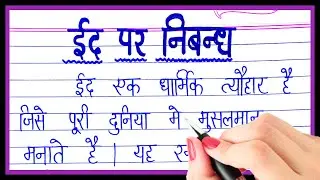 ईद पर निबन्ध
ईद एक धार्मिक त्यौहार है
जिसे पूरी दुनिया मे मुसलमान
मनाते है । यह